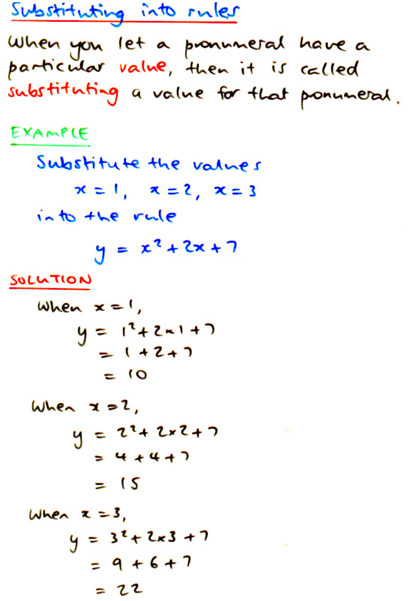 Substituting into rules
When you let a pronumeral have a
particular value, then it is called
substituting a value for that ponumeral.
EXAMPLE
Substitute the values
x = 1, x = 2, x = 3
into the rule
y = x² + 2x + 7
SOLUTION
When x = 1,
y = 1² + 2×1 + 7
= 1 + 2 + 7
= 10
When x = 2,
y = 2² + 2×2 + 7
= 4 + 4 + 7
= 15
When x = 3,
y = 3² + 2×3 + 7
= 9 + 6 + 7
= 22